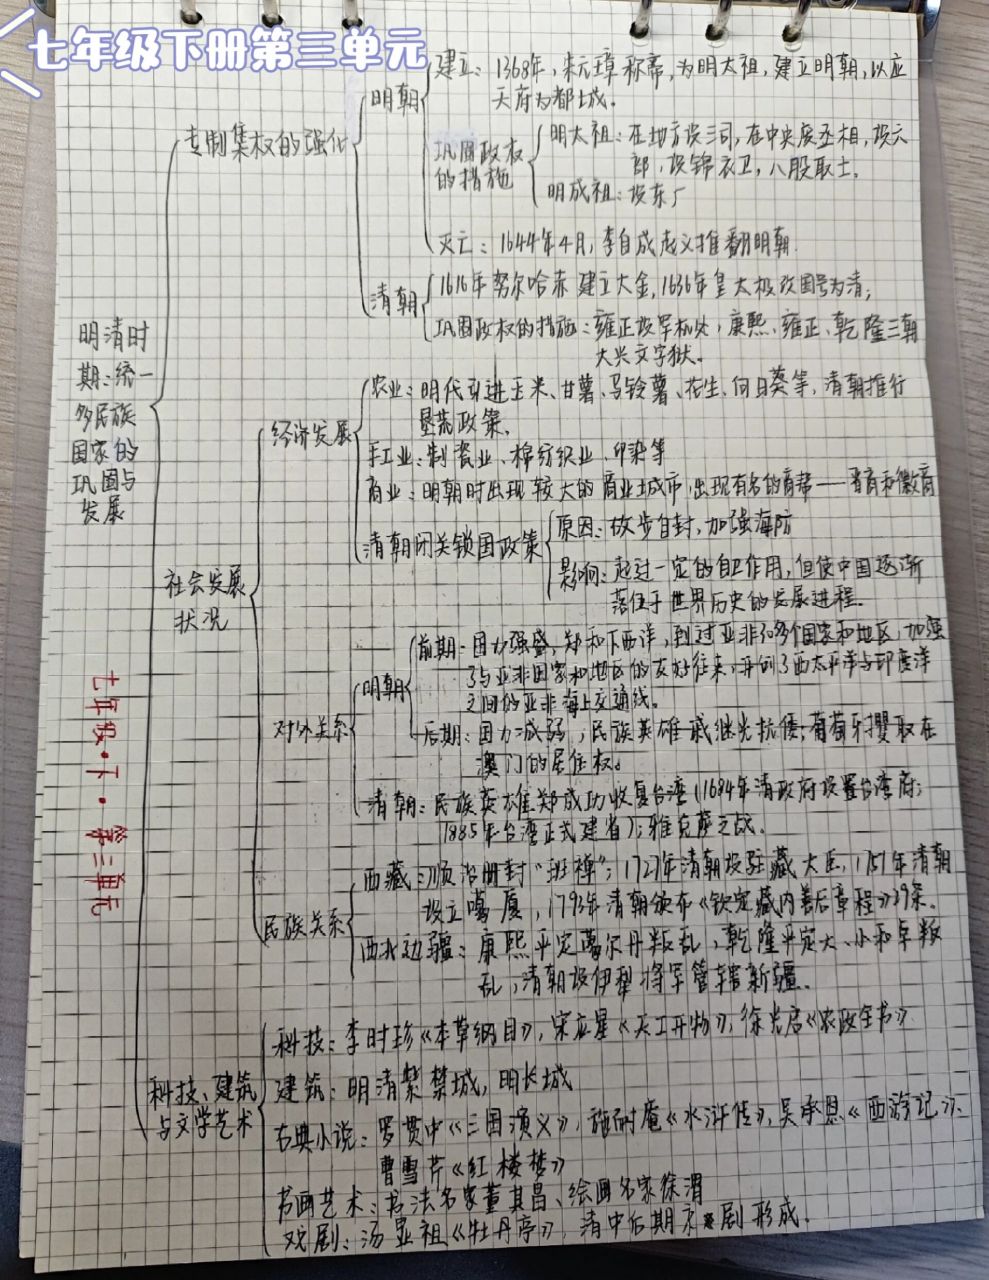 七年级下册第三单元
明清时期:统一多民族国家的巩固与发展
专制集权的强化
明朝
建立:1368年,朱元璋称帝,为明太祖,建立明朝,以应
天府为都城。
巩固政权的措施
明太祖:在地方设三司,在中央废丞相,设六
部,设锦衣卫,八股取士。
明成祖:设东厂
灭亡:1644年4月,李自成起义推翻明朝.
清朝
1616年努尔哈赤建立大金,1636年皇太极改国号为清;
巩固政权的措施:雍正设军机处,康熙、雍正、乾隆三朝
大兴文字狱。
社会发展状况
经济发展
农业:明代引进玉米、甘薯、马铃薯、花生、向日葵等,清朝推行
垦荒政策。
手工业:制瓷业、棉纺织业、印染等
商业:明朝时出现较大的商业城市,出现有名的商帮——晋商和徽商
清朝闭关锁国政策
原因:故步自封,加强海防
影响:起过一定的自卫作用,但使中国逐渐
落伍于世界历史的发展进程。
对外关系
明朝
前期:国力强盛,郑和下西洋,到过亚非30多个国家和地区,加强
了与亚非国家和地区的友好往来,开创了西太平洋与印度洋
之间的亚非海上交通线。
后期:国力减弱,民族英雄戚继光抗倭;葡萄牙攫取在
澳门的居住权。
清朝:民族英雄郑成功收复台湾(1684年清政府设置台湾府;
1885年台湾正式建省);雅克萨之战。
民族关系
西藏:顺治册封“班禅”;1727年清朝设驻藏大臣,1751年清朝
设立噶厦,1793年清朝颁布《钦定藏内善后章程》29条.
西北边疆:康熙平定噶尔丹叛乱,乾隆平定大、小和卓叛
乱,清朝设伊犁将军管辖新疆.
科技、建筑与文学艺术
科技:李时珍《本草纲目》,宋应星《天工开物》,徐光启《农政全书》
建筑:明清紫禁城,明长城
古典小说:罗贯中《三国演义》,施耐庵《水浒传》,吴承恩《西游记》、
曹雪芹《红楼梦》
书画艺术:书法名家董其昌、绘画名家徐渭
戏剧:汤显祖《牡丹亭》,清中后期京剧形成.
七年级·下·第三单元